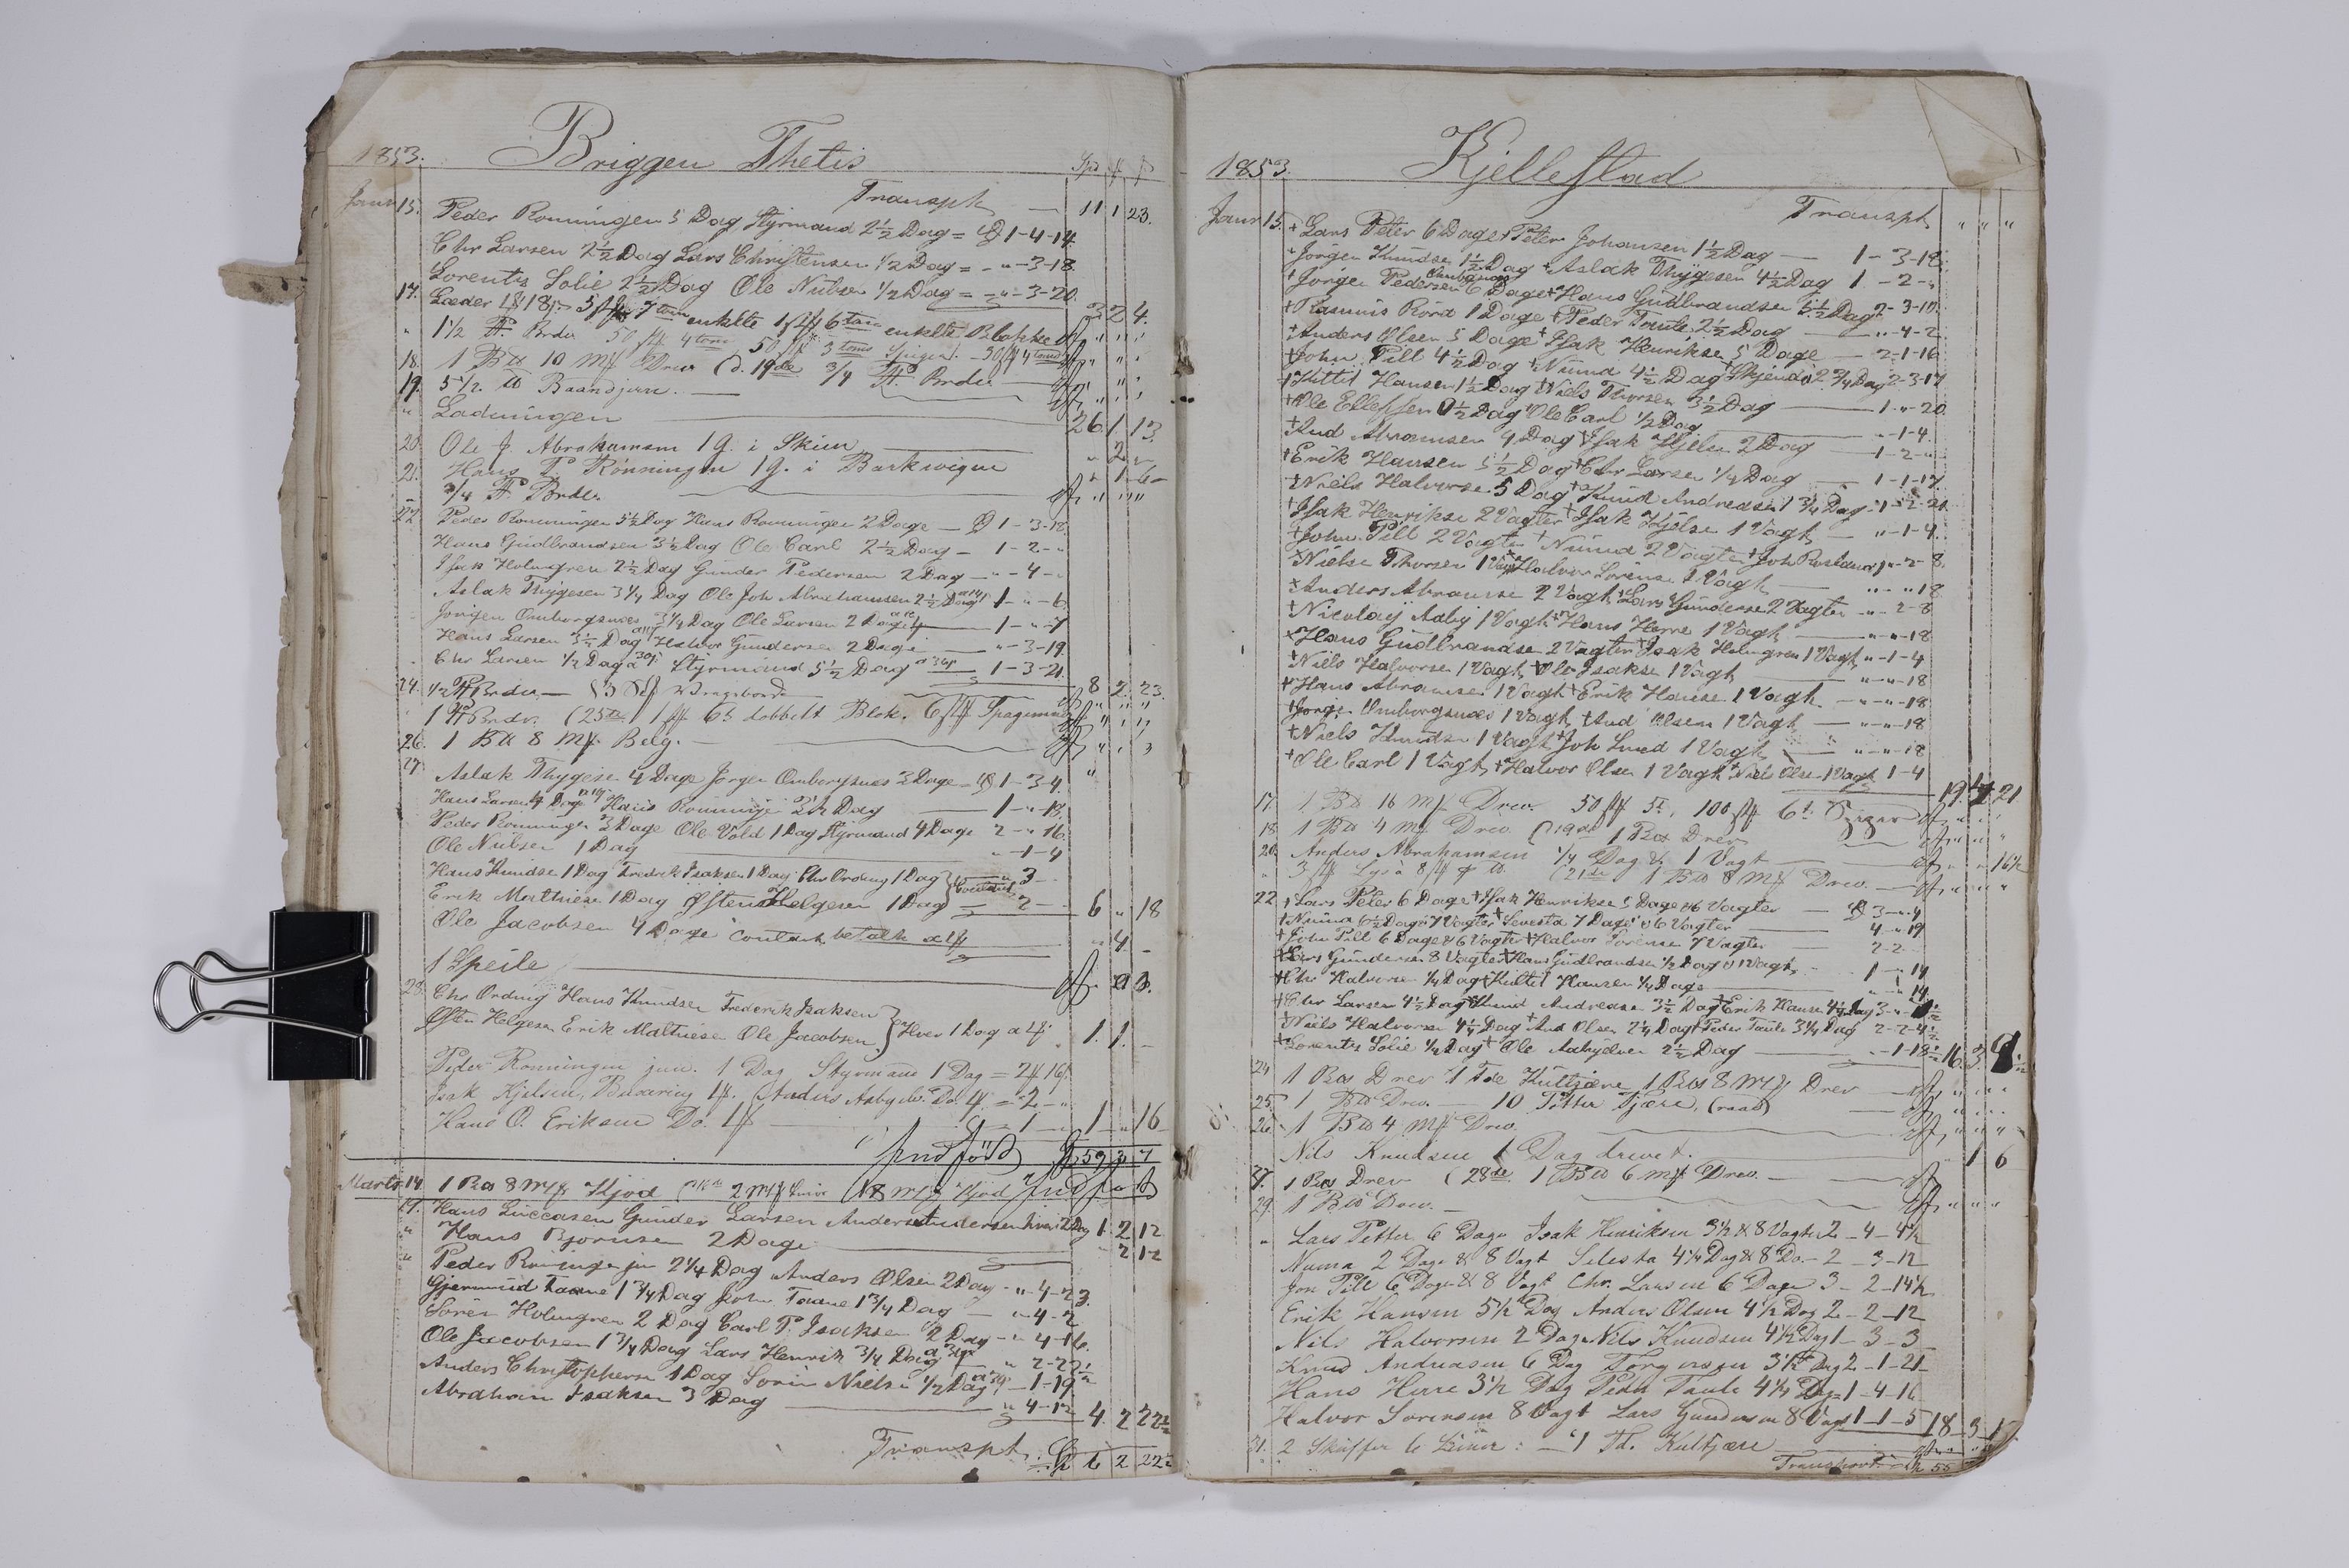 1853. Briggen Thetis Spd
Janr 15. Transpt 11 1 23.
Peder Ronningen 5 Dag Styrmand 2½ Dag = 1-4-14.
Chr Larsen 2½ Dag Lars Christensen 1/2 Dag = - " -3-18.
Lorentz Solie 2½ Dag Ole Nielsen ½ Dag = - " -3-20.
3 2 4.
17. Læder 5 7 tom enkelte 1 6 tom enkelte Blokke
" 1½ Brder 50 4 tom 50 3 toms Spiger. 50 4 tom
18. 1 10 Drev (d. 19de 3/4 Brder
19. 5½ Baandjern.
" Ladningen 26. 1. 13.
20. Ole J. Abrahamsen 1 g. i Skien " 2 "
21. Hans P. Rönningen 1 g. i Barkevigen 1-6-
" 3/4 Brder.
22 Peder Ronningen 5½ Dag Hans Ronningen 2 Dage 1-3-18.
Hans Gudbrandsen 3½ Dag Ole Carl 2½ Dag - 1-2-"
Isak Holmgren 2½ Dag Gunder Pedersen 2 Dag - " -4-"
Aslak Thygesen 3¼ Dag Ole Joh Abrahamsen 2½ Dag 1-"-6.
Jorgen Omborgsnes 3¼ Dag Ole Larsen 2 Dage 1-"-7
Hans Larsen 3½ Dag Halvor Gundersen 2 Dage " -3-19.
Chr Larsen ½ Dag Styrmand 5½ Dag 1-3-21.
8 2. 23.
24. ½ Brder
1 Brder. (25de 1 dobbelt Blok. 6
26. 1 8 Belg.
27 Aslak Thygesen 4 Dage Jorgen Omborgsnes 3 Dage = 1-3-4.
Hans Larsen 4 Dag Hans Ronninge Dag 1-"-13.
Peder Ronningen 3 Dage Ole Vold 1 Dag Styrmand 4 Dage 2-"-16.
Ole Nielsen 1 Dag " -1-4
Hans Knudsen 1 Dag Fredrik Isaksen 1 Dag Chr Ording 1 Dag " 3-
Erik Mathiesen 1 Dag Østen Helgesen 1 Dag 2-
6 " 18
Ole Jacobsen 4 Dage Contant betalt " 4. -
1 Speile
28. Chr Ording Hans Knudsen Frederik Isaksen
Østen Helgesen Erik Mathiesen Ole Jacobsen Hver 1 Dag 1. 1. -
Peder Ronningen jun. 1 Dag Styrmand 1 Dag =
Isak Kjelsen, Anders
Hans O. Eriksen Do. 1 1 " 16
59 3 7
Marts 14 1 8 Kjød 2 8 Kjød
19. Hans Luccasen Gunder Larsen Anders Andersen hver 2 Dag 1 2 12
" Hans Bjornsen 2 Dage " 2 12
" Peder Roninge jun 2¼ Dag Anders Olsen 2 Dag - " -4-23.
Gjermund Taane 1¾ Dag John Taane 1¾ Dag " -4-2
Sören Holmgren 2 Dag Carl P. Isaksen 2 Dag - " 4-16.
Ole Jacobsen 1¾ Dag Lars Henrik ¾ Dag " 2-22½
Anders Christophersen 1 Dag Sorin Nielsen ½ Dag -1-19
Abraham Isaksen 3 Dag " 4-12
4 2 22½
Transpt. 6 2 22½
1853. Kjellestad
Janr 15. Transpt " " "
+Lars Peter 6 Dage +Peter Johansen 1½ Dag 1-3-18.
+Jörgen Knudsen 1½ Dag +Aslak Thygesen 4½ Dag 1-2-"
+Jorgen Pedersen Omborgsnes 6 Dage +Hans Gudbrandsen 6½ Dag 2-3-10.
+Rasmus Rörd 1 Dage +Peder Taule 2½ Dag " -4-2
+Anders Olsen 5 Dage +Isak Henriksen 5 Dage 2-1-16
+John Pill 4½ Dag +Numa 4½ Dag 2¾ Dag 2-3-17
+Kittil Hansen 1½ Dag +Niels Thorsen 3½ Dag 1-"-20.
+Ole Ellefsen 0½ Dag Ole Carl ½ Dag " -1-4.
+And Abramsen 4 Dag +Isak Hjelsen 2 Dag 1-2-"
+Erik Hansen 5½ Dag +Chr Larsen ¼ Dag 1-1-17.
+Niels Halvorsen 5 Dag +Knud Andreasen 1¾ Dag 1-2-21.
+Isak Henrikse 2 Vagter +Isak Hjelse 1 Vagt " -1-4.
+John Pill 2 Vagter +Numa 2 Vagter +Joh " -2-8.
+Nielse Thorsen 1 Vagt +Halvor Sorense 1 Vagt " -"-18
+Anders Abramse 2 Vagt +Lars Gunderse 2 Vagter " -2-8
+Nicolay Aaby 1 Vagt +Hans Herre 1 Vagt " -"-18
+Hans Gudbrandse 2 Vagter +Isak Holmgren 1 Vagt " -1-4
+Niels Halvorsen 1 Vagt +Ole Isakse 1 Vagt " -"-18
+Hans Abramsen 1 Vagt +Erik Hanse 1 Vagt " -"-18.
+Jorge Omborgsnes 1 Vagt +And Olsen 1 Vagt " -"-18
+Niels Knudse 1 Vagt +Joh Lund 1 Vagt " -"-18
+Ole Carl 1 Vagt +Halvor Olsen 1 Vagt +Niels Olsen 1 Vagt 1-4
19. 4 21.
17. 1 16 Drev. 50 5t, 100 6t. Spiger
18. 1 4 Drev. (19de 1 Drev
20. Anders Abrahamsen ¼ Dag & 1 Vagt " 16½
" 3 Lys (21de 1 8 Drev.
22 +Lars Peter 6 Dage +Isak Henrikse 5 Dage 6 Vagter 3-"-4
+Numa 6½ Dage 7 Vagter +Sevesta 7 Dage 6 Vagter 4-"-19
+John Pill 6 Dage & 6 Vagter +Halvor Sorense 7 Vagter 2-2-
+Lars Gundersen 8 Vagter +Hans Gudbrandsen ½ Dag 1 Vagt 1-"-14
+Chr Halvorsen ¼ Dag +Kittil Hansen ¼ Dage " " 14.
+Chr Larsen 4½ Dag +Knud Andreasen 3½ Dag +Erik Hansen 4½ Dag 3-"
+Niels Halvorsen 4¼ Dag +And Olsen 2¼ Dag +Peder Taule 3¼ Dag 2-2-4½
+Lorentz Solie ¼ Dag + Ole 2½ Dag -1-18½
16. 3.
24 1 Drev 1 Tde Kultjære 1 8 Drev
25. 1 Drev. 10 Potter Tjære, (raad)
26. 1 4 Drev.
Nils Knudsen 1 Dag drevet. 1 6
27. 1 Drev (28de 1 6 Drev.
29. 1 Drev.
" Lars Petter 6 Dage Isak Henriksen 3½ & 8 Vagter 2-4-4½
Numa 2 Dage & 8 Vagt Selesta 4¼ Dag & 8 Do. - 2-3-12
Jon Pill 6 Dage & 8 Vagt Chr. Larsen 6 Dage 3-2-14½
Erik Hansen 5½ Dag Anders Olsen 4½ Dag 2-2-12
Nils Halvorsen 2 Dage Nils Knudsen 4½ Dag 1-3-3
Knud Andreasen 6 Dag Torgersen 3½ Dag 2-1-21
Hans Herre 3½ Dag Peder Taule 4¼ Dag = 1-4-16
Halvor Sorensen 8 Vagt Lars Gundersen 8 Vagt 1-1-5
18-3-17
31. 2 Skuffer 6 : - 1 Td. Kultjære
Transport 55